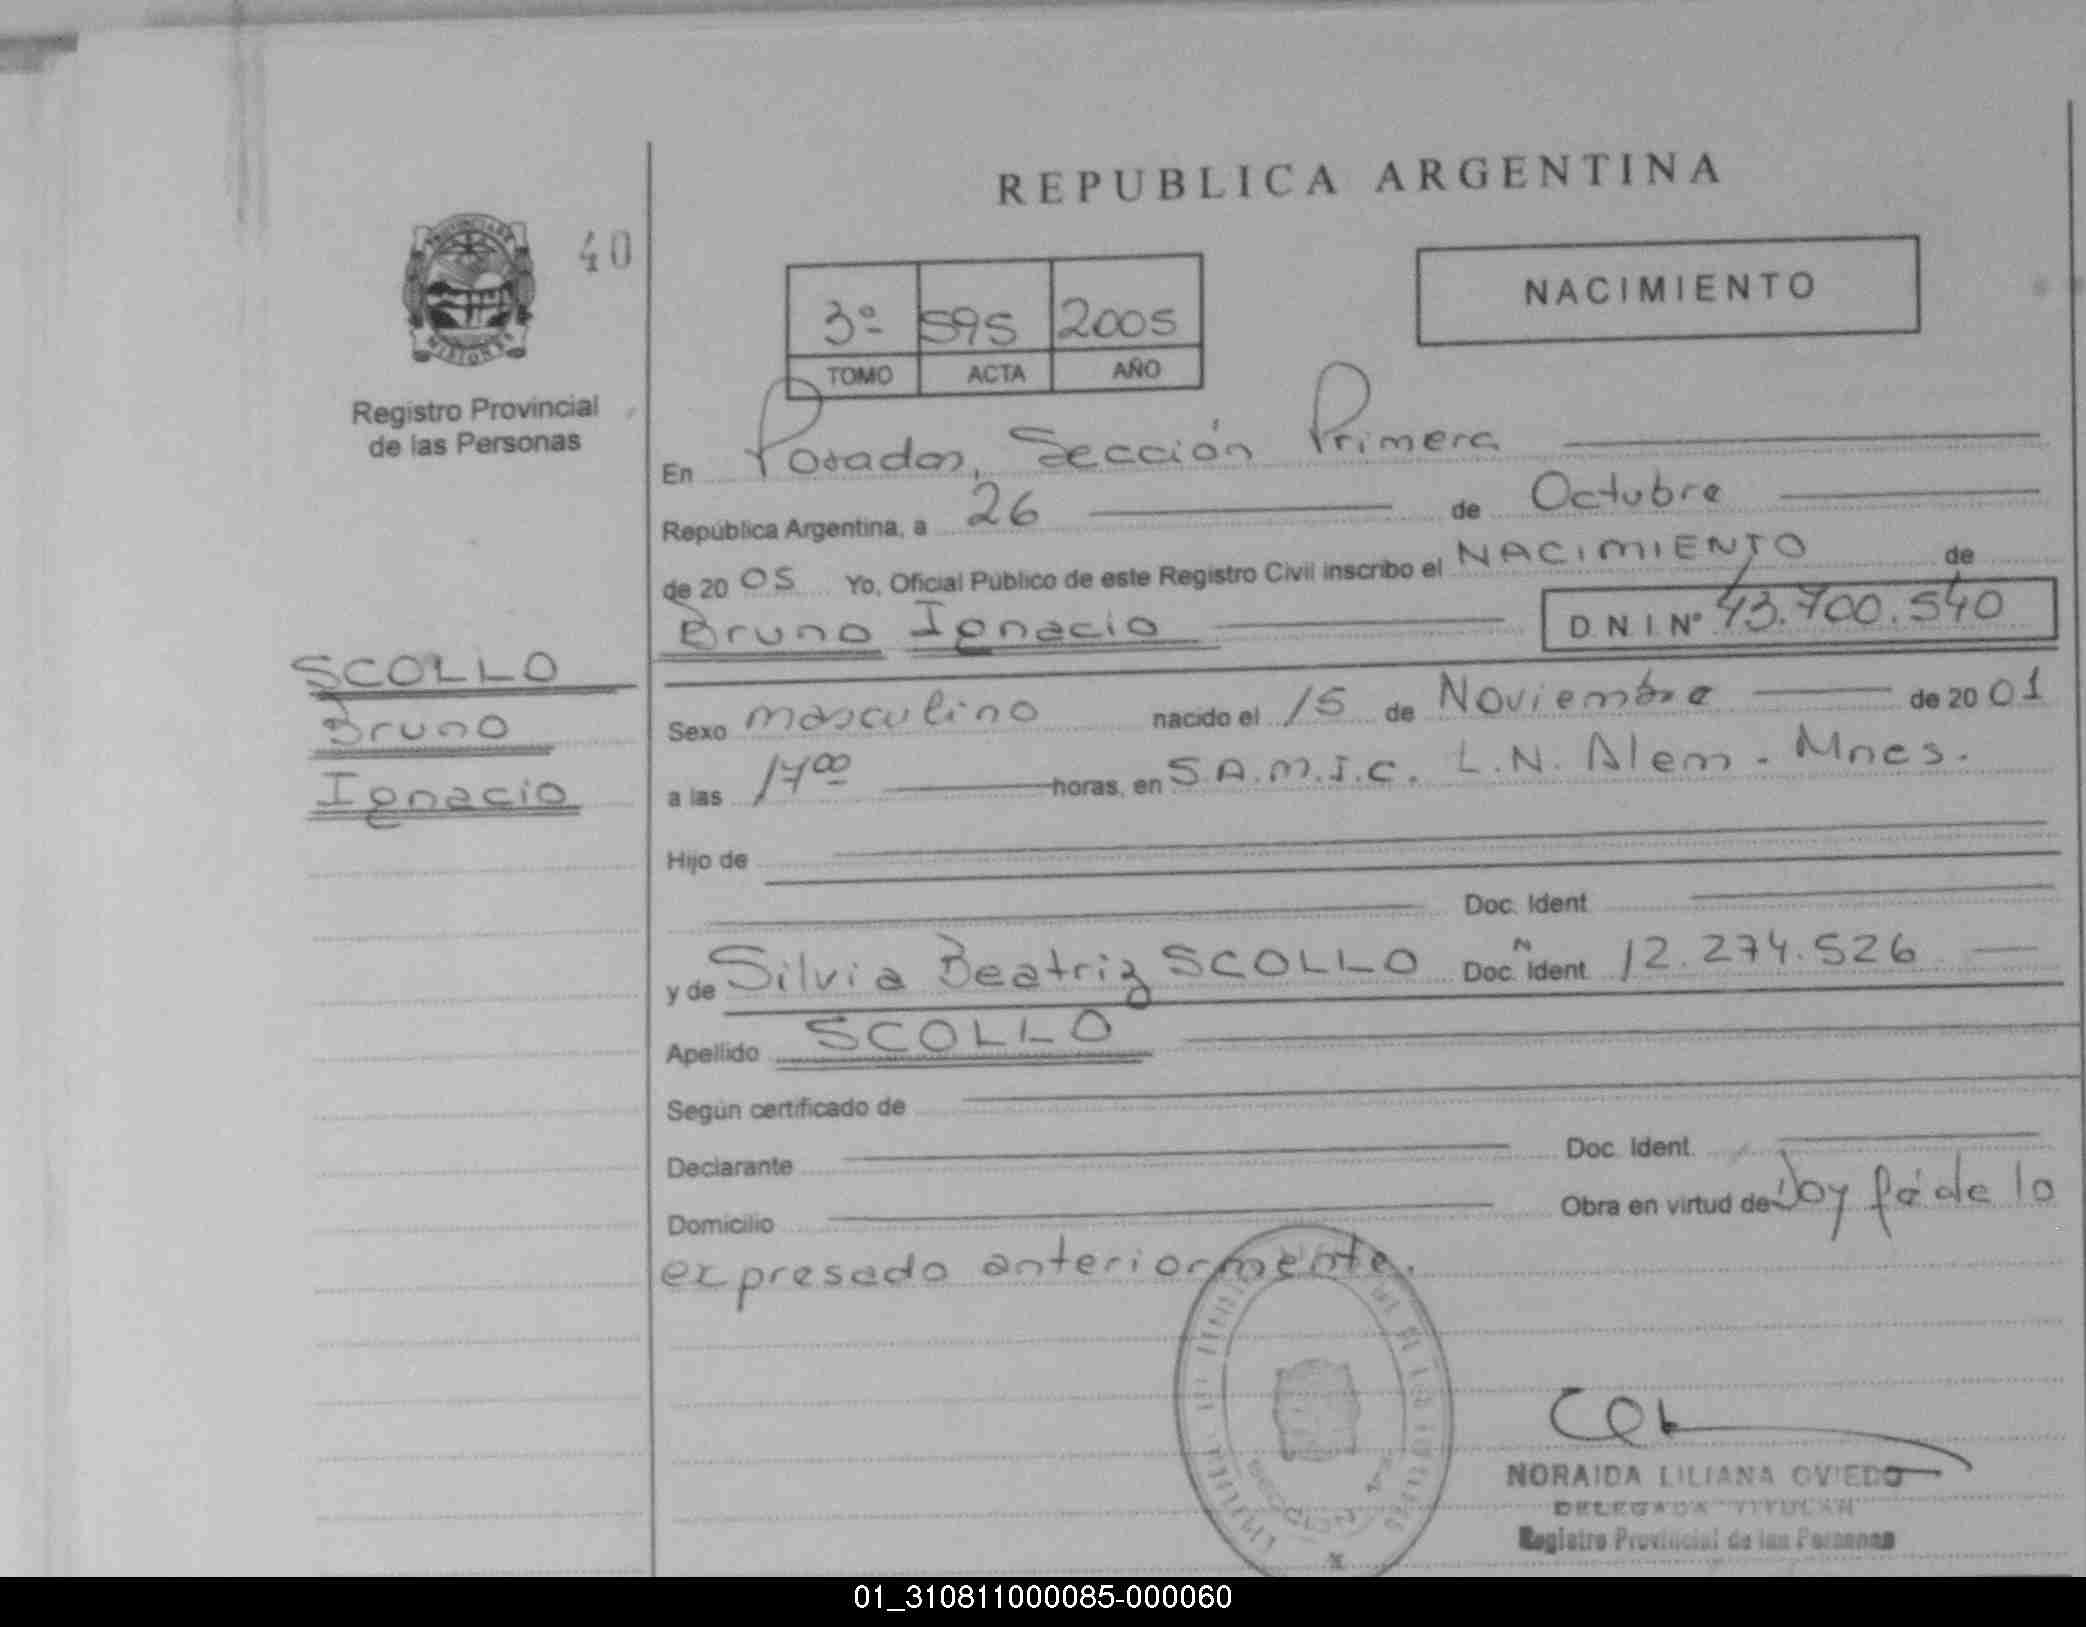 REPUBLICA ARGENTINA
PROVINCIA DE
MISIONES
40
Registro Provincial
de las Personas
3º 595 2005
TOMO ACTA AÑO
NACIMIENTO
En Posadas, Sección Primera
República Argentina, a 26 de Octubre
de 20 05 Yo, Oficial Público de este Registro Civil inscribo el NACIMIENTO de
Bruno Ignacio D.N.I. Nº 43.700.540
SCOLLO
Bruno
Ignacio
Sexo masculino nacido el 15 de Noviembre de 20 01
a las 17⁰⁰ horas, en S.A.M.I.C. L.N. Alem - Mnes.
Hijo de
Doc. Ident
y de Silvia Beatriz SCOLLO Doc. Ident. 12.274.526
Apellido SCOLLO
Según certificado de
Declarante Doc. Ident.
Domicilio Obra en virtud de Doy fé de lo
expresado anteriormente.
NORAIDA LILIANA OVIEDO
DELEGADA TITULAR
Registro Provincial de las Personas
01_310811000085-000060